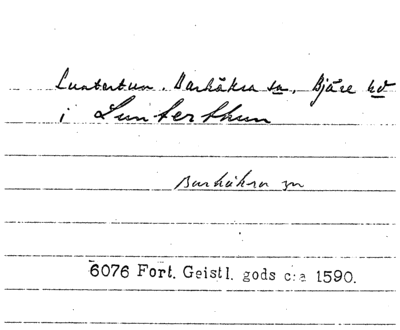 Luntertun. Barkåkra sn, Bjäre hd
i Lunterthun
Barkåkra sn
6076 Fort. Geistl. gods c:a 1590.